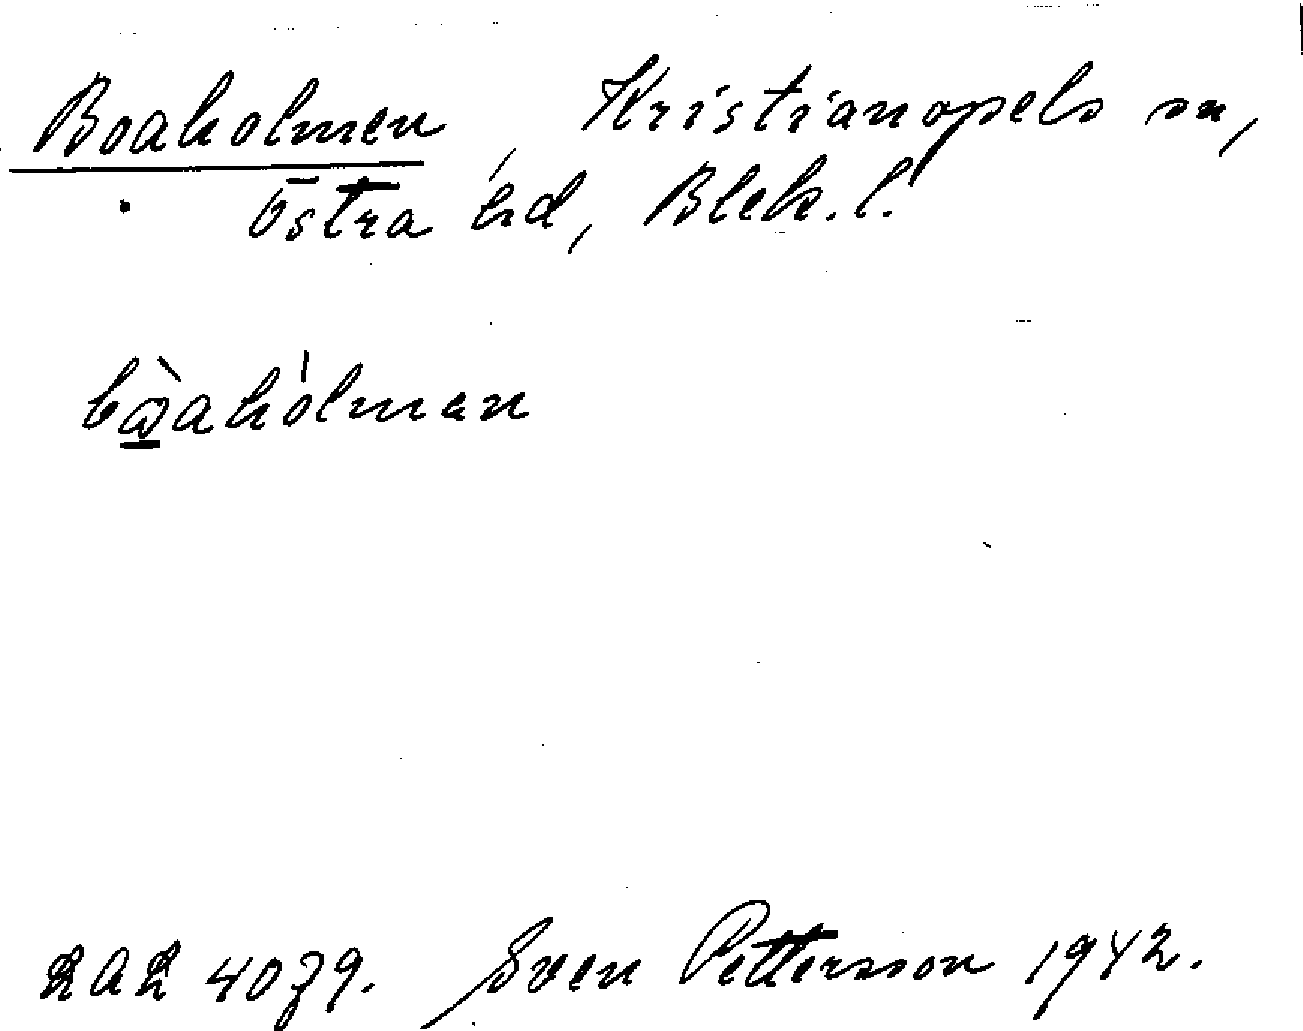 Boaholmen, Kristianopels sn,
Östra hd, Blek. l.
LAL 4079. Sven Pettersson 1942.